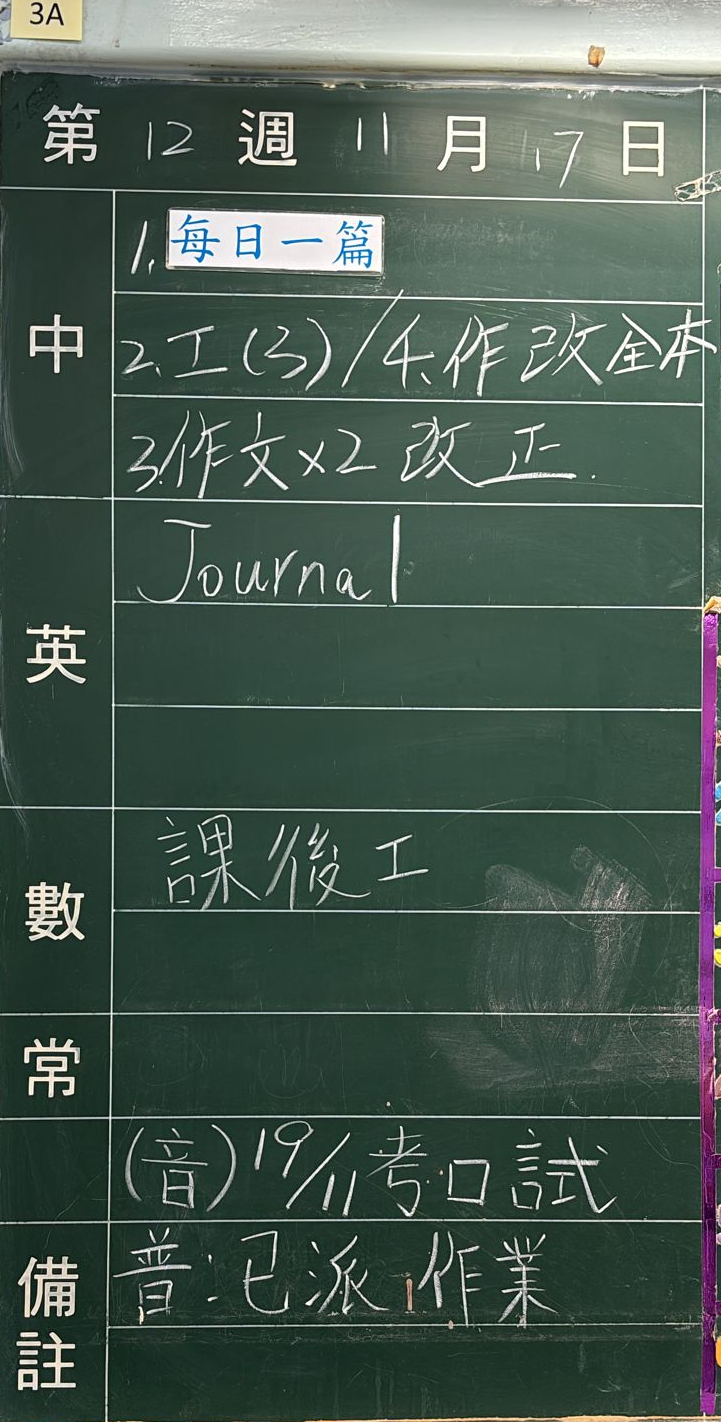 3A
第 12 週 11 月 17 日
中
1. 每日一篇
2. 工(3) / 4. 作改全本
3. 作文x2 改正
英
Journal
數
課後工
常
(音) 19/11 考口試
備註
普:已派作業